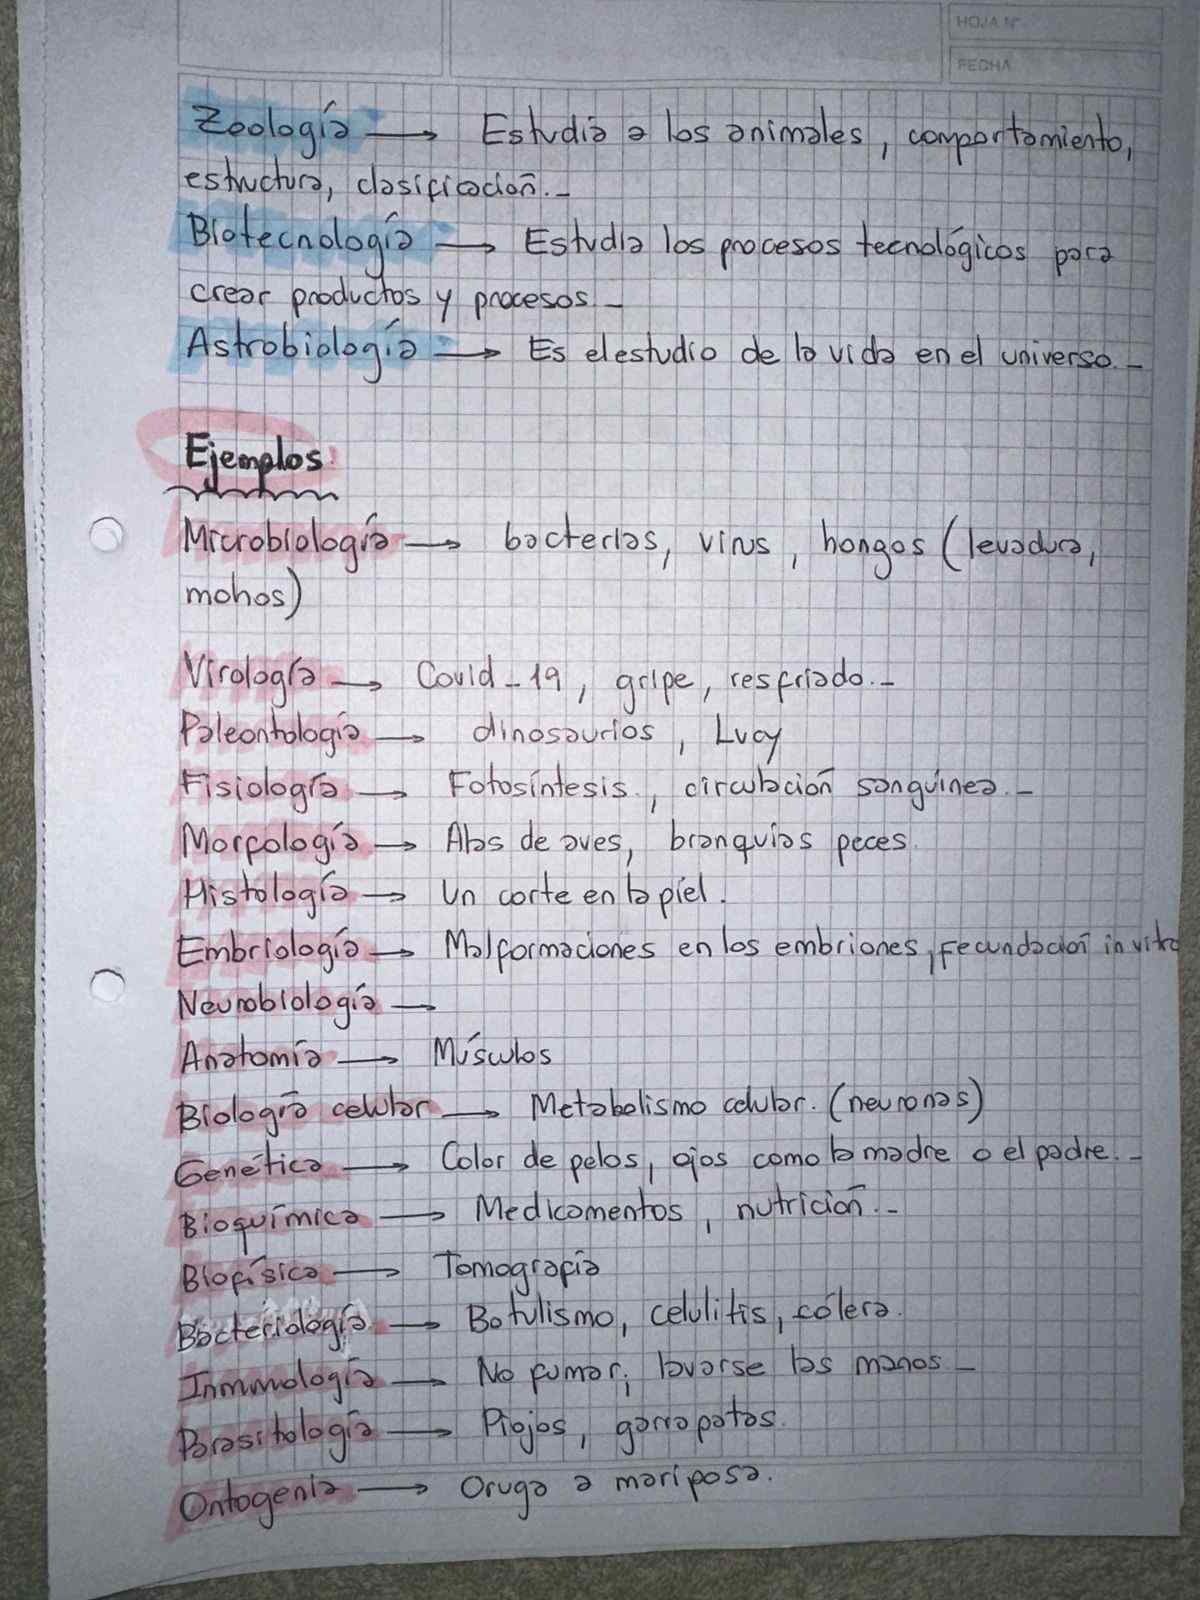 HOJA N°
FECHA
Zoología → Estudia a los animales, comportamiento,
estructura, clasificación.-
Biotecnología → Estudia los procesos tecnológicos para
crear productos y procesos.-
Astrobiología → Es el estudio de la vida en el universo.-
Ejemplos
Microbiología → bacterias, virus, hongos (levadura,
mohos)
Virología → Covid-19, gripe, resfriado.-
Paleontología → dinosaurios, Lucy
Fisiología → Fotosíntesis, circulación sanguínea.-
Morfología → Alas de aves, branquias peces.
Histología → Un corte en la piel.
Embriología → Malformaciones en los embriones, fecundación in vitro
Neurobiología →
Anatomía → Músculos
Biología celular → Metabolismo celular. (neuronas)
Genética → Color de pelos, ojos como la madre o el padre.-
Bioquímica → Medicamentos, nutrición.-
Biofísica → Tomografía
Bacteriología → Botulismo, celulitis, cólera.
Inmunología → No fumar, lavarse las manos.-
Parasitología → Piojos, garrapatas.
Ontogenia → Oruga a mariposa.